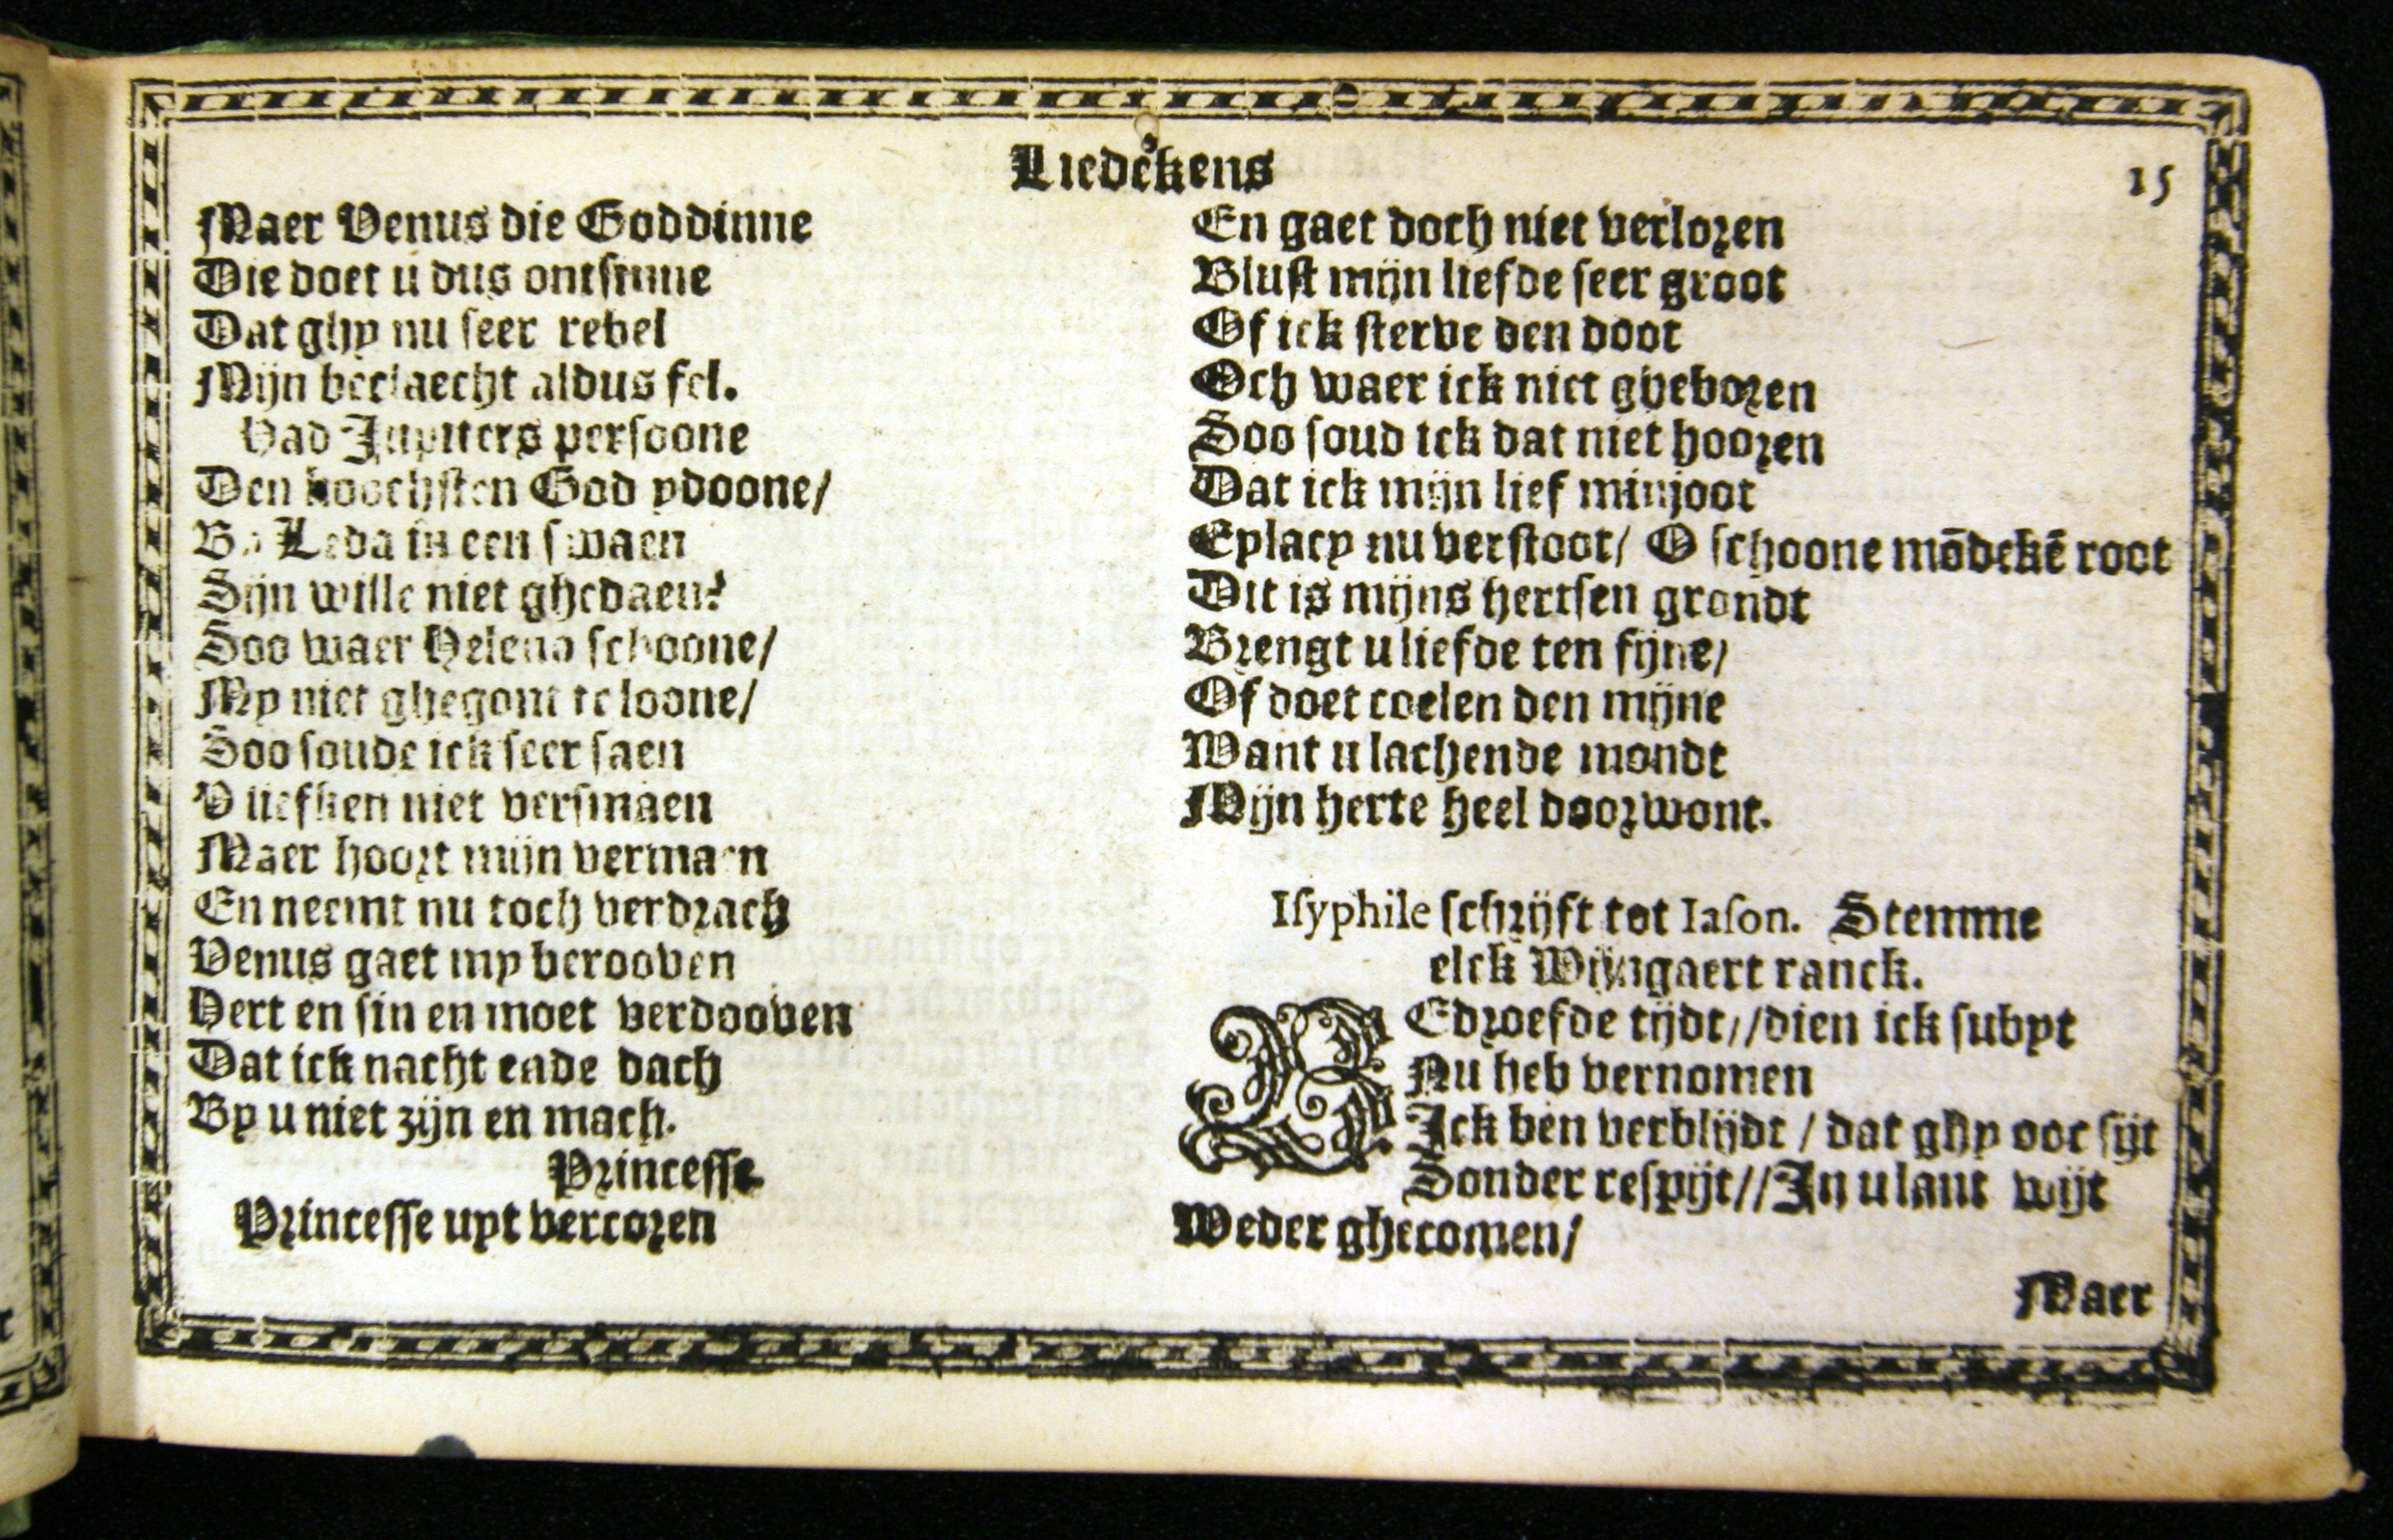 Liedekens
15
Maer Venus die Goddinne
Die doet u dus ontsinne
Dat ghy nu seer rebel
Mijn verjaecht aldus fel.
Had Jupiters persoone
Den hoochsten God ydoone/
By Leda in een swaen
Sijn wille niet ghedaen?
Soo waer Helena schoone/
My niet ghegont te loone/
Soo soude ick seer saen
V liefken niet versmaen
Maer hoort mijn vermaen
En neemt nu toch verdrach
Venus gaet my berooven
Hert en sin en moet verdooven
Dat ick nacht ende dach
By u niet zijn en mach.
Princesse
Princesse uyt vercoren
En gaet doch niet verloren
Blust mijn liefde seer groot
Of ick sterve den doot
Och waer ick niet gheboren
Soo soud ick dat niet hooren
Dat ick mijn lief minjoot
Eylacy nu verstoot/ O schoone mōdekē root
Dit is mijns hertsen grondt
Brengt u liefde ten fijne/
Of doet coelen den mijne
Want u lachende mondt
Mijn herte heel doorwont.
Isyphile schrijft tot Iason. Stemme
elck Wijngaert ranck.
BEdroefde tijdt//dien ick subyt
Nu heb vernomen
Ick ben verblijdt / dat ghy ooc sijt
Sonder respijt//In u lant wijt
Weder ghecomen/
Maer